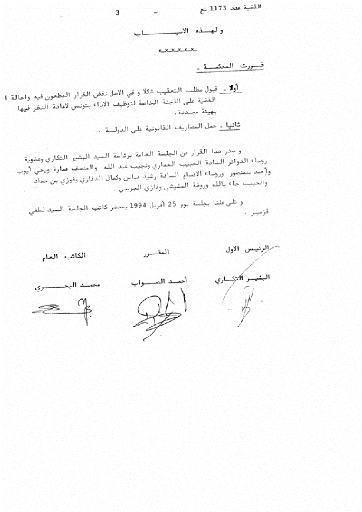 القضية عدد 1173 - 3
ولهذه الاسباب
××××××
قررت المحكمة .
أولا . قبول مطلب التعقيب شكلا و في الاصل نقض القرار المطعون فيه واحالة
القضية على اللجنة الخاصة لتوظيف الاداء بتونس لاعادة النظر فيها
بهيئة جديدة .
ثانيا . حمل المصاريف القانونية على الدولة .
و صدر هذا القرار عن الجلسة العامة برئاسة السيد البشير التكاري وعضوية
رؤساء الدوائر السادة الحبيب العماري ونجيب عبد الله والمنصف عمارة ويحي أيوب
وأحمد بنمنصور ورؤساء الاقسام السادة رشيد عباس وكمال وفوزي بن حماد
والحبيب جاء بالله وروضة المشيشي وغازي
و تلي علنا بجلسة يوم 25 أفريل 1994 بمحضر كاتب الجلسة السيد لطفي
الرئيس الأول المقرر الكاتب العام
البشير التكاري أحمد الصواب محمد البحري